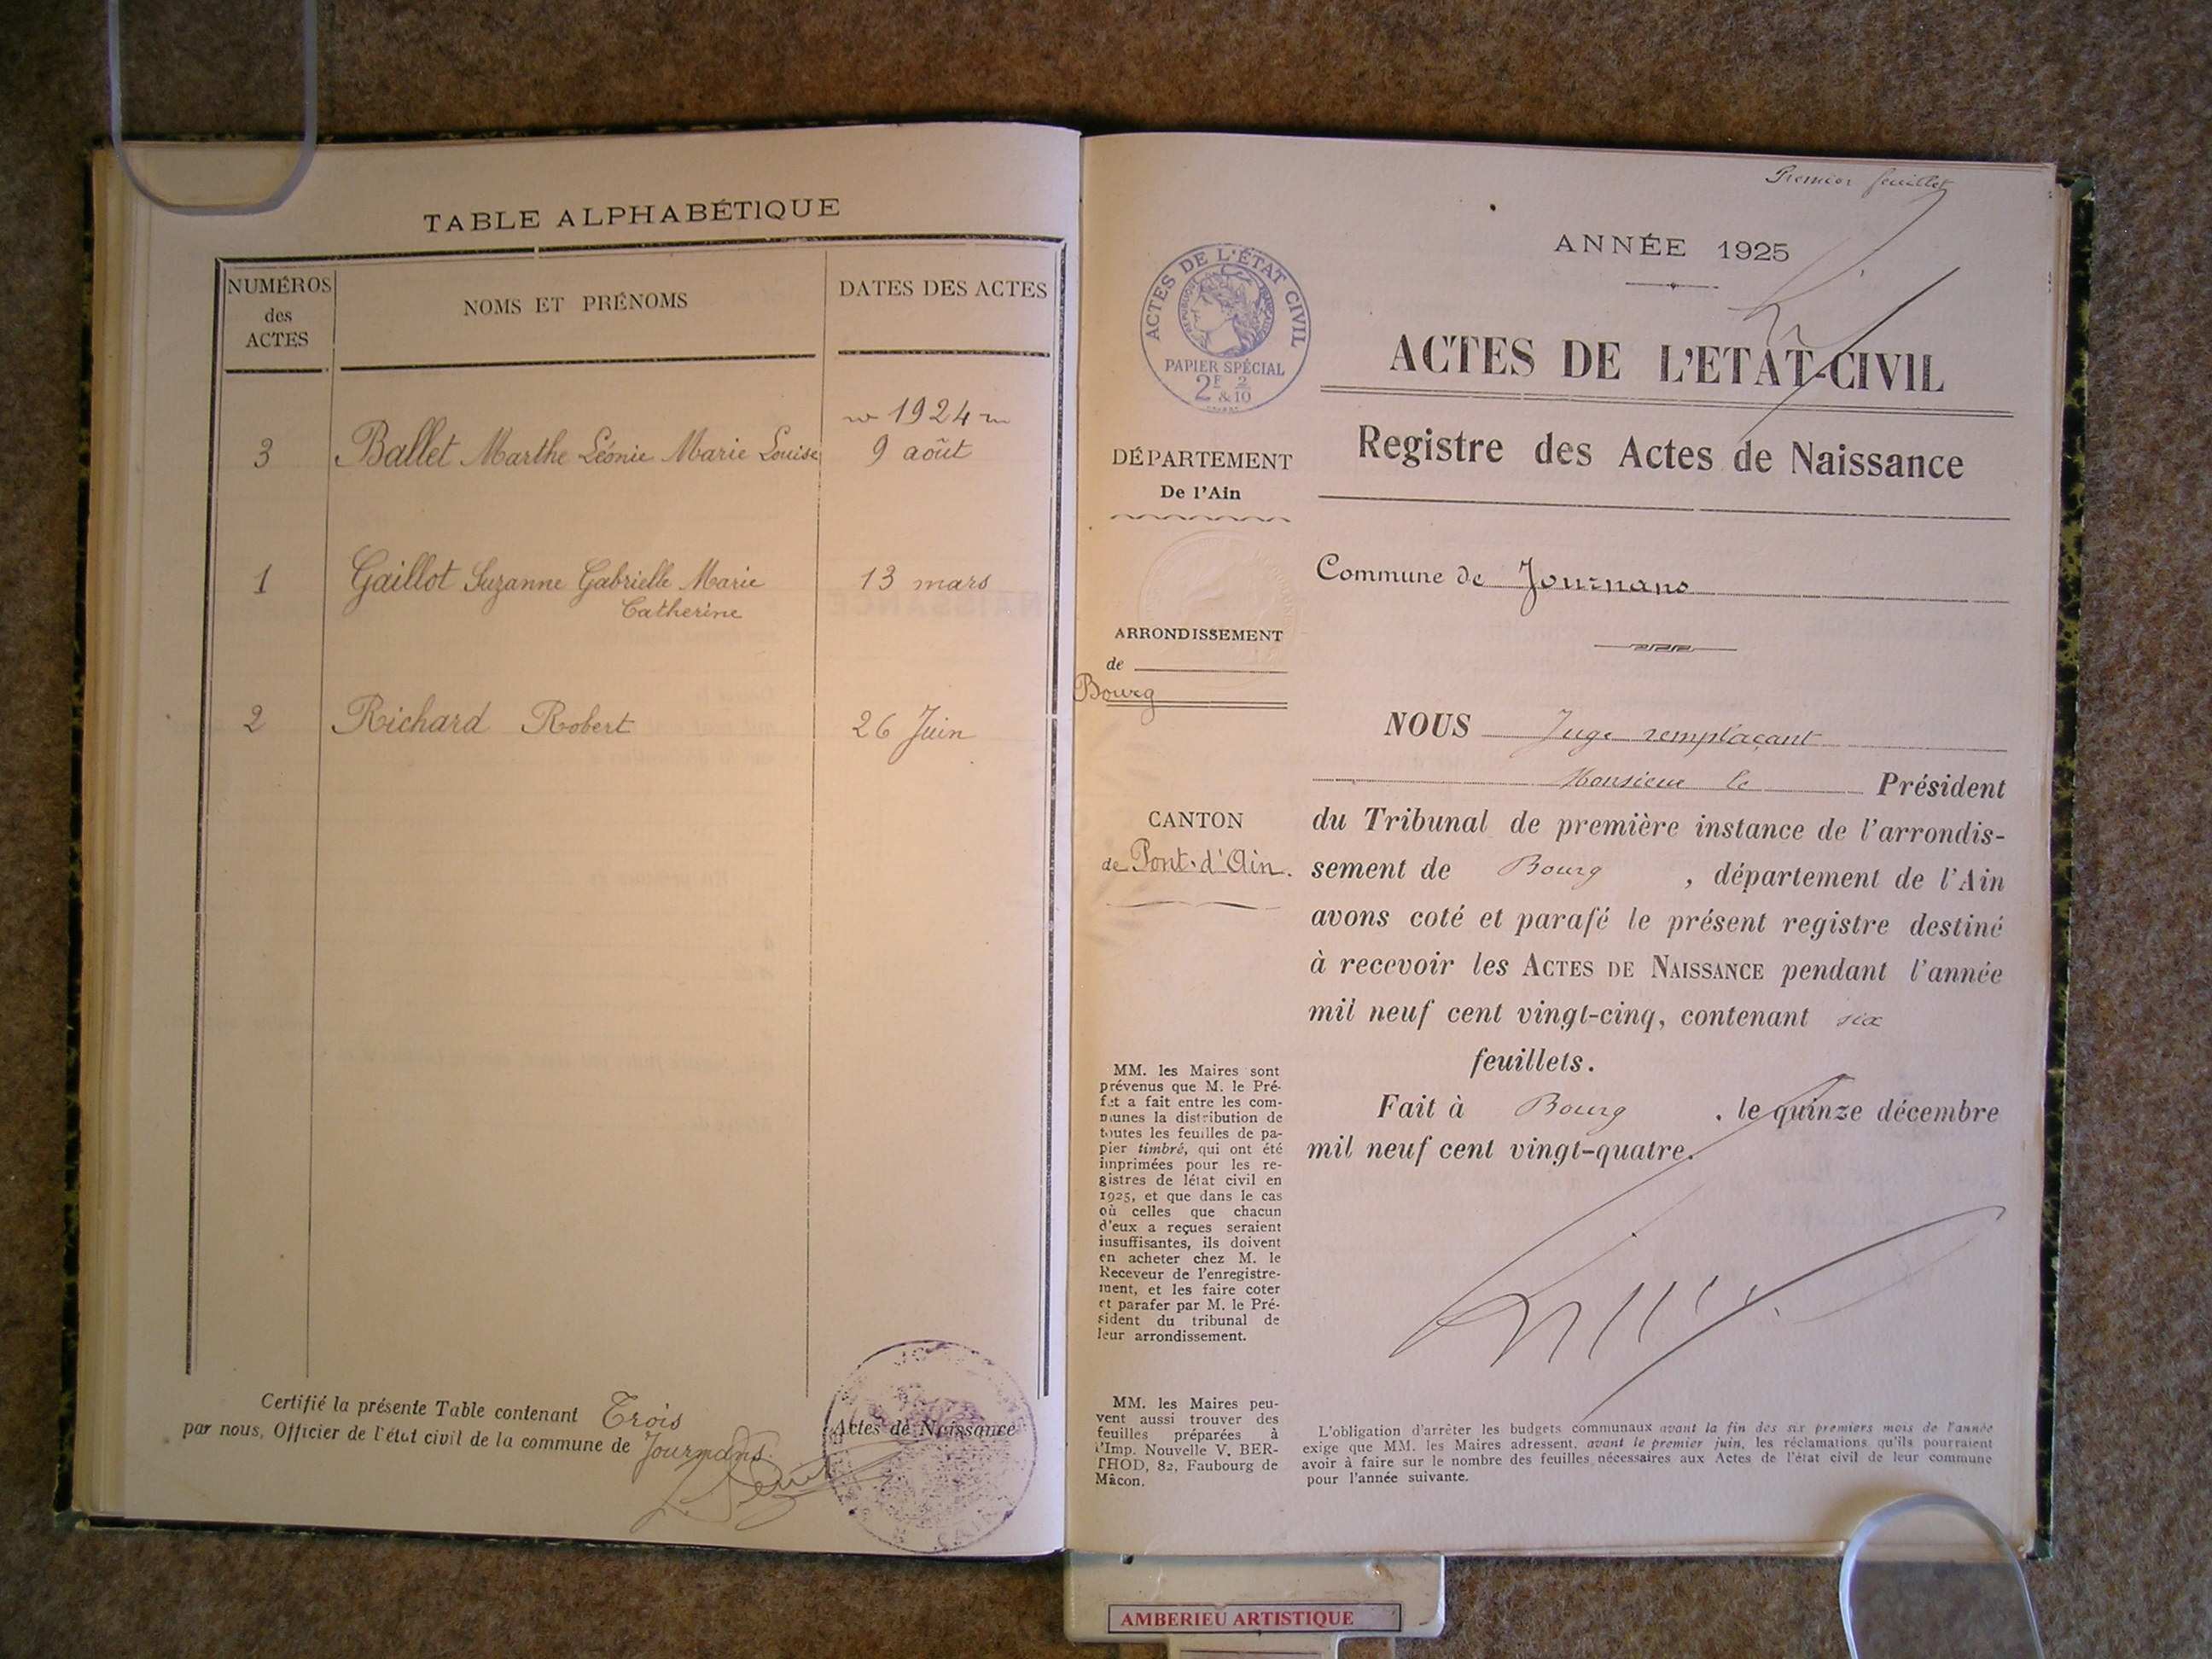 TABLE ALPHABÉTIQUE
NUMÉROS
des
ACTES
NOMS ET PRÉNOMS
DATES DES ACTES
1924
3 Ballet Marthe Léonie Marie Louise 9 août
1 Gaillot Suzanne Gabrielle Marie 13 mars
Catherine
2 Richard Robert 26 Juin
Certifié la présente Table contenant Trois
par nous, Officier de l'état civil de la commune de Journans
Actes de Naissance
Premier feuillet
ANNÉE 1925
ACTES DE L'ÉTAT CIVIL
RÉPUBLIQUE FRANÇAISE
PAPIER SPÉCIAL
2F 2
& 10
ACTES DE L'ETAT-CIVIL
Registre des Actes de Naissance
DÉPARTEMENT
De l'Ain
Commune de Journans
ARRONDISSEMENT
de
Bourg
CANTON
de Pont-d'Ain.
NOUS Juge remplaçant
Monsieur le Président
du Tribunal de première instance de l'arrondis-
sement de Bourg, département de l'Ain
avons coté et parafé le présent registre destiné
à recevoir les ACTES DE NAISSANCE pendant l'année
mil neuf cent vingt-cinq, contenant six
feuillets.
Fait à Bourg, le quinze décembre
mil neuf cent vingt-quatre.
MM. les Maires sont
prévenus que M. le Pré-
fet a fait entre les com-
munes la distribution de
toutes les feuilles de pa-
pier timbré, qui ont été
imprimées pour les re-
gistres de létat civil en
1925, et que dans le cas
où celles que chacun
d'eux a reçues seraient
insuffisantes, ils doivent
en acheter chez M. le
Receveur de l'enregistre-
ment, et les faire coter
et parafer par M. le Pré-
sident du tribunal de
leur arrondissement.
MM. les Maires peu-
vent aussi trouver des
feuilles préparées à
l'Imp. Nouvelle V. BER-
THOD, 82, Faubourg de
Mâcon.
L'obligation d'arrêter les budgets communaux avant la fin des six premiers mois de l'année
exige que MM. les Maires adressent, avant le premier juin, les réclamations qu'ils pourraient
avoir à faire sur le nombre des feuilles nécessaires aux Actes de l'état civil de leur commune
pour l'année suivante.
AMBERIEU ARTISTIQUE